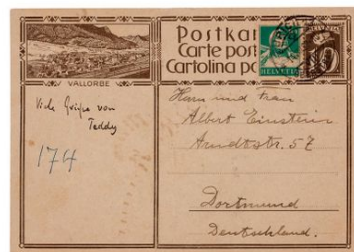 Postkar
Carte post
Cartolina po
HELVETIA
VALLORBE
Viele Grüße von
Teddy
174
Herrn und Frau
Albert Einstein
Arndtstr. 57
Dortmund
Deutschland.